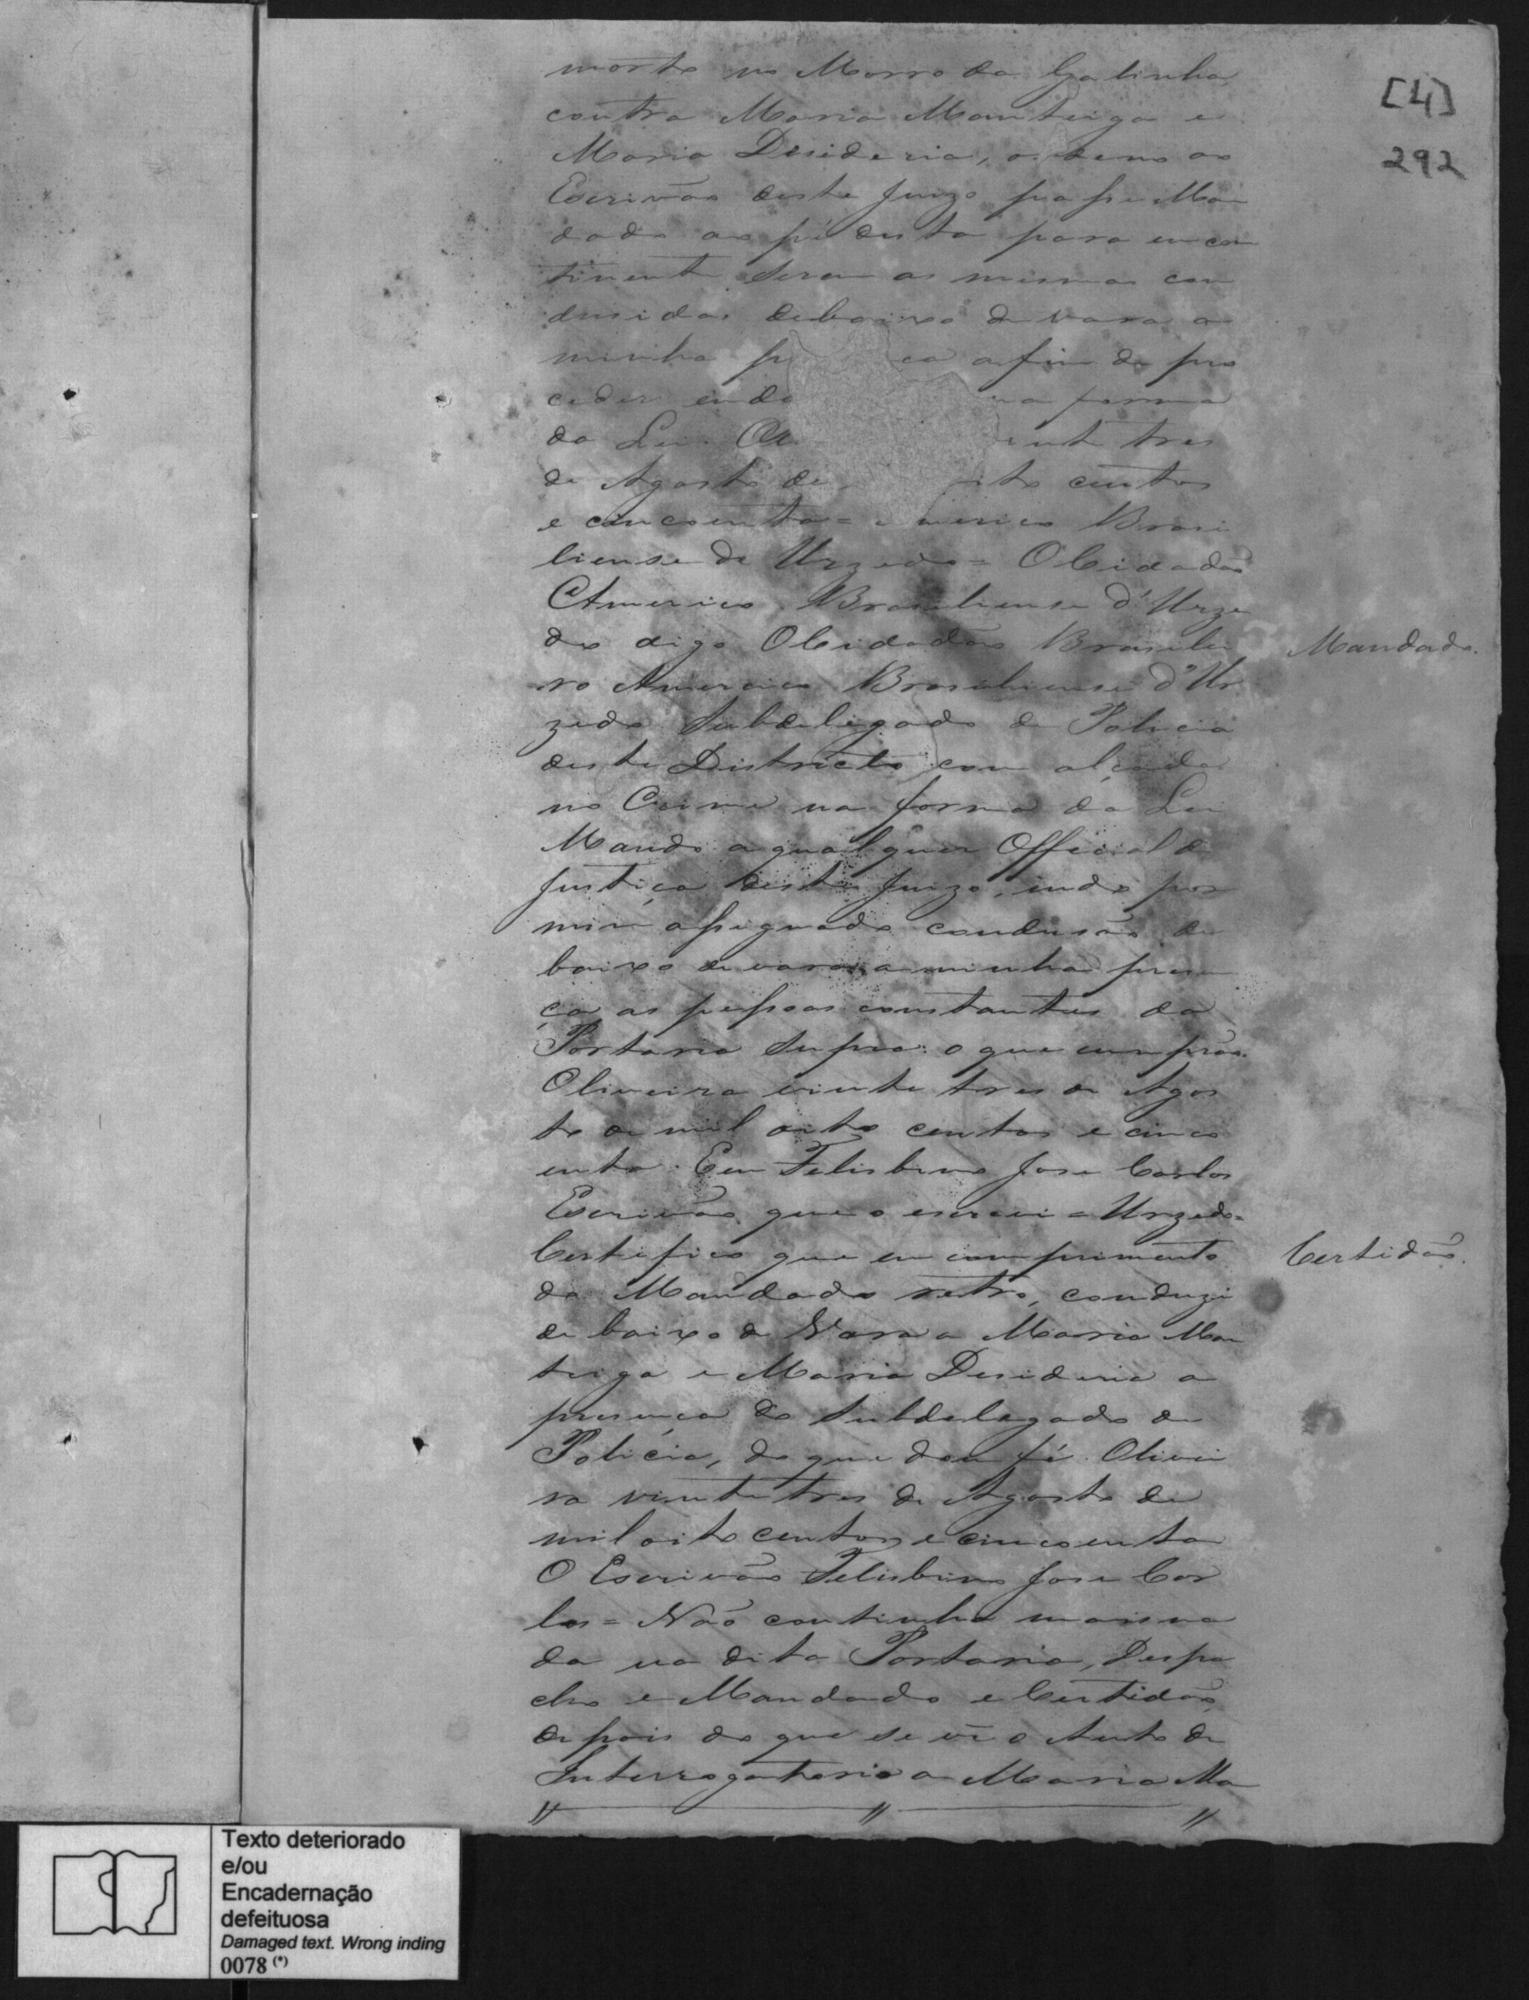 [4]
292
morte no Morro da Galinha
contra Maria Manteiga e
Maria Desideria, ordeno ao
Escrivão deste Juizo passe Man
dado ao pé desta para encon
tinente serem as mesmas con
dusidas debaixo de vara a
minha pr ca afim de pro
ceder indo na forma
da Lei. Ol inte tres
de Agosto de ito centos
e cincoenta = Americo Brasi
liense de Urzedo = O Cidadão
Americo Brasiliense d'Urze
do digo O Cidadão Brasilei
ro Americo Brasiliense d'Ur
zedo Subdelegado de Policia
deste Districto com alçada
no Crime na forma da Lei
Mandado.
Mando a qualquer Official de
Justiça deste Juizo, indo por
mim assignado condusão de
baixo de vara a minha presen
ça as pessoas constantes da
Portaria supra: o que cumprão.
Oliveira vinte tres de Agos
to de mil oito centos e cinco
enta. Eeu Felisbino Jose Carlos
Escrivão que o escrevi = Urzedo =
Certifico que em comprimento
Certidão.
do Mandado retro, conduzi
de baixo de Vara a Maria Man
teiga e Maria Desideria a
presença do Subdelegado de
Policia, do que dou fé. Olivei
ra vinte tres de Agosto de
mil oito centos e cincoenta
O Escrivão Felisbino Jose Car
los = Não continha mais na
da na dita Portaria, Despa
cho e Mandado e Certidão,
depois do que se vê o Auto de
Interrogatorio a Maria Ma
Texto deteriorado
e/ou
Encadernação
defeituosa
Damaged text. Wrong inding
0078 (*)